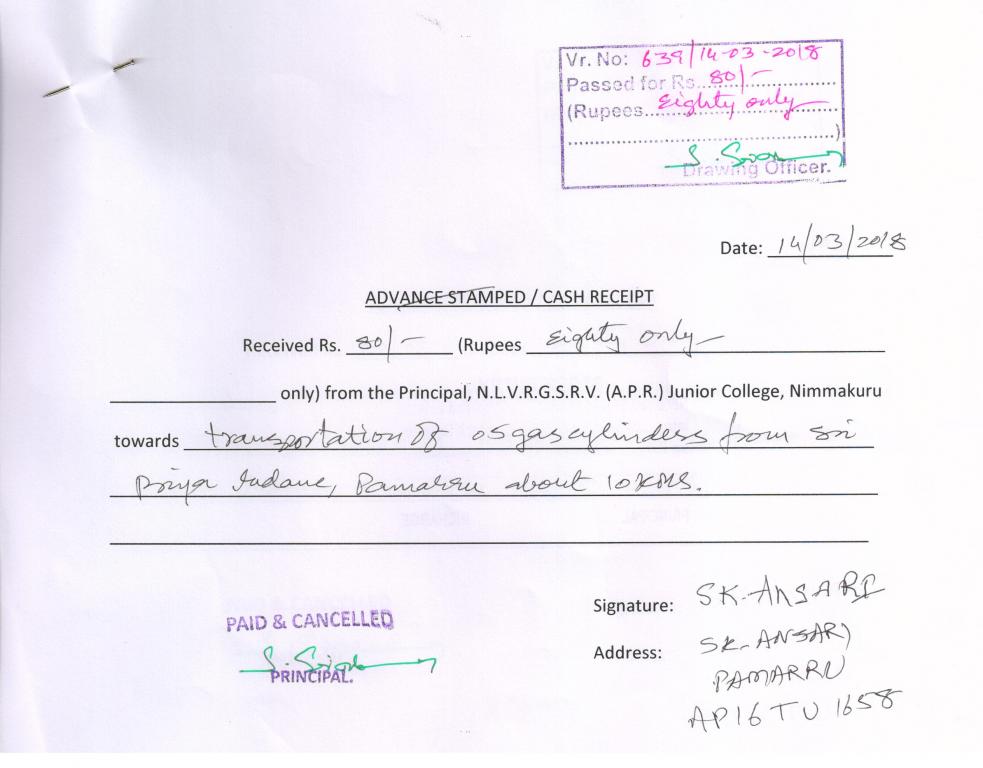 Vr. No: 639/14-03-2018
Passed for Rs. 80/-
(Rupees Eighty only
)
Drawing Officer.
Date: 14/03/2018
ADVANCE STAMPED / CASH RECEIPT
Received Rs. 80/- (Rupees Eighty only
only) from the Principal, N.L.V.R.G.S.R.V. (A.P.R.) Junior College, Nimmakuru
towards transportation of 05 gas cylinders from Sri
Priya Indane, Pamarru about 10 KMS.
PAID & CANCELLED
PRINCIPAL.
Signature: SK. ANSARI
Address: SK. ANSARI
PAMARRU
AP16 TU 1658